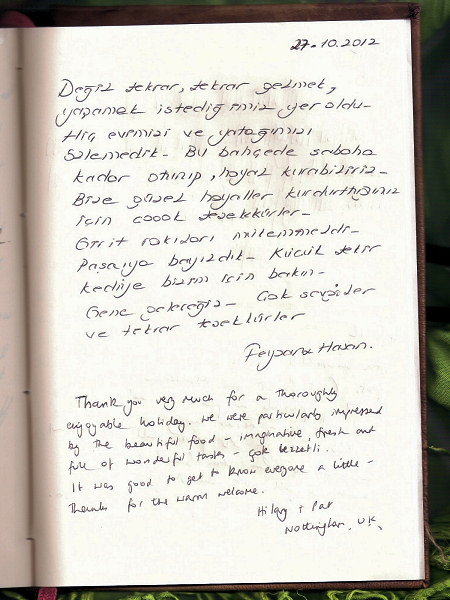 27.10.2012
Değil tekrar, tekrar gelmek,
yaşamak istediğimiz yer oldu-
Hiç evimizi ve yatağımızı
özlemedik- Bu bahçede sabaha
kadar oturup, hayal kurabiliriz-
Bize güzel hayaller kurdırttığınız
için çoook teşekkürler-
Girit rakıları mükemmeldi-
Paşaya bayıldık- Küçük tekir
kediye bizim için bakın-
Gene geleceğiz- Çok sevgiler
ve tekrar teşekkürler
Hasan.
Thank you very much for a thoroughly
enjoyable holiday. We were particularly impressed
by the beautiful food - imaginative, fresh and
full of wonderful tastes - çok lezzetli.
It was good to get to know everyone a little -
Thanks for the warm welcome.
Hilary + Pat
Nottingham, UK.